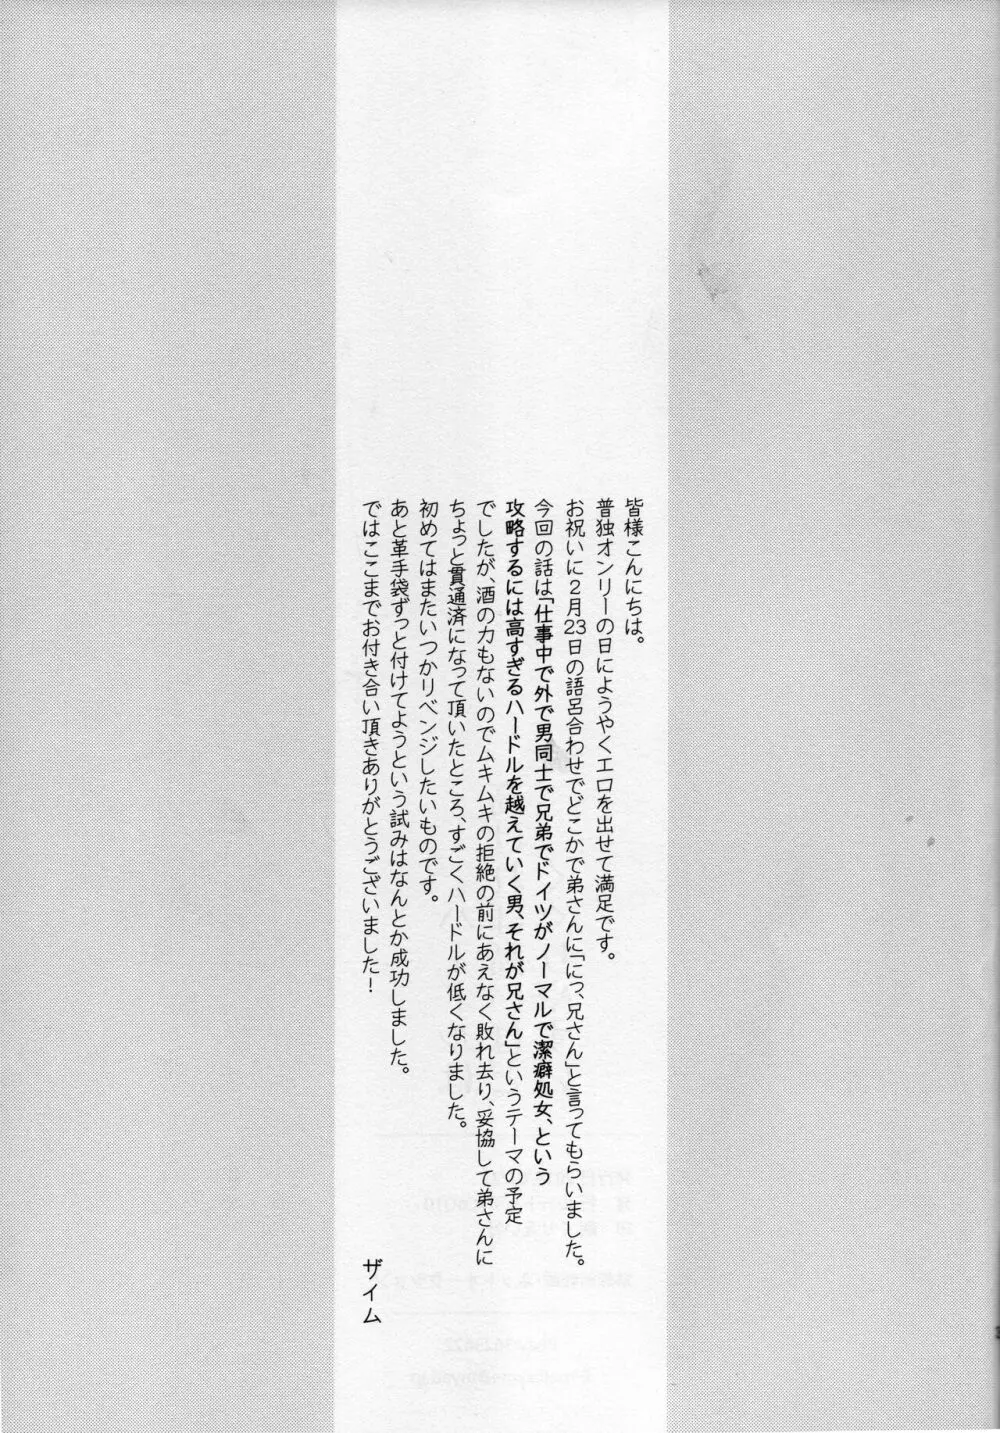 皆様こんにちは。
普独オンリーの日にようやくエロを出せて満足です。
お祝いに2月23日の語呂合わせでどこかで弟さんに「にっ、兄さん」と言ってもらいました。
今回の話は「仕事中で外で男同士で兄弟でドイツがノーマルで潔癖処女、という
攻略するには高すぎるハードルを越えていく男、それが兄さん」というテーマの予定
でしたが、酒の力もないのでムキムキの拒絶の前にあえなく敗れ去り、妥協して弟さんに
ちょっと貫通済になって頂いたところ、すごくハードルが低くなりました。
初めてはまたいつかリベンジしたいものです。
あと革手袋ずっと付けてようという試みはなんとか成功しました。
ではここまでお付き合い頂きありがとうございました!
ザイム